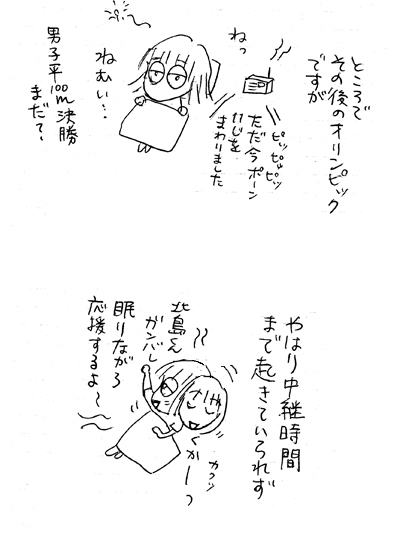 ところで
その後のオリンピック
ですが
ピッピッピッ
ただ今ポーン
11じを
まわりました
ねっ
ねむい…
男子平100m決勝
まだて?
やはり中継時間
まで起きていられず
北島くん
ガンバレ
眠りながら
応援するよ〜
カッ
くかーっ